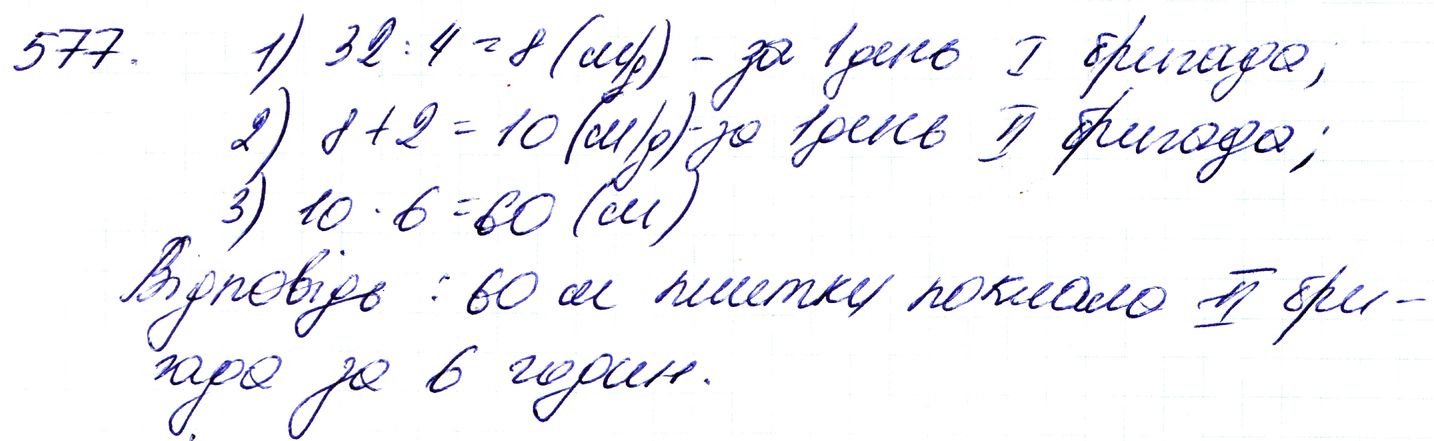 577. 1) 32 : 4 = 8 (м/д) - за 1 день I бригада;
2) 8 + 2 = 10 (м/д) - за 1 день II бригада;
3) 10 · 6 = 60 (м)
Відповідь : 60 м плитки поклала II бри-
гада за 6 годин.